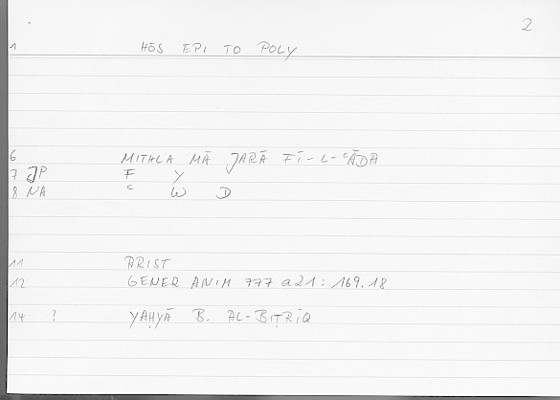 2
1 HŌS EPI TO POLY
6 MITHLA MĀ JARĀ FĪ-L-ʿĀDA
7 JP F Y
8 NA ʿ W D
11 ARIST
12 GENER ANIM 777 a21 : 169.18
14 ? YAḤYĀ B. AL-BIṬRĪQ